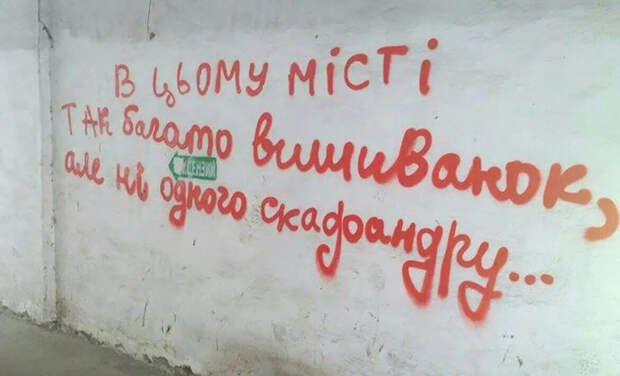 В ЦЬОМУ МІСТІ
ТАК багато вишиванок,
але ні одного скафандру...